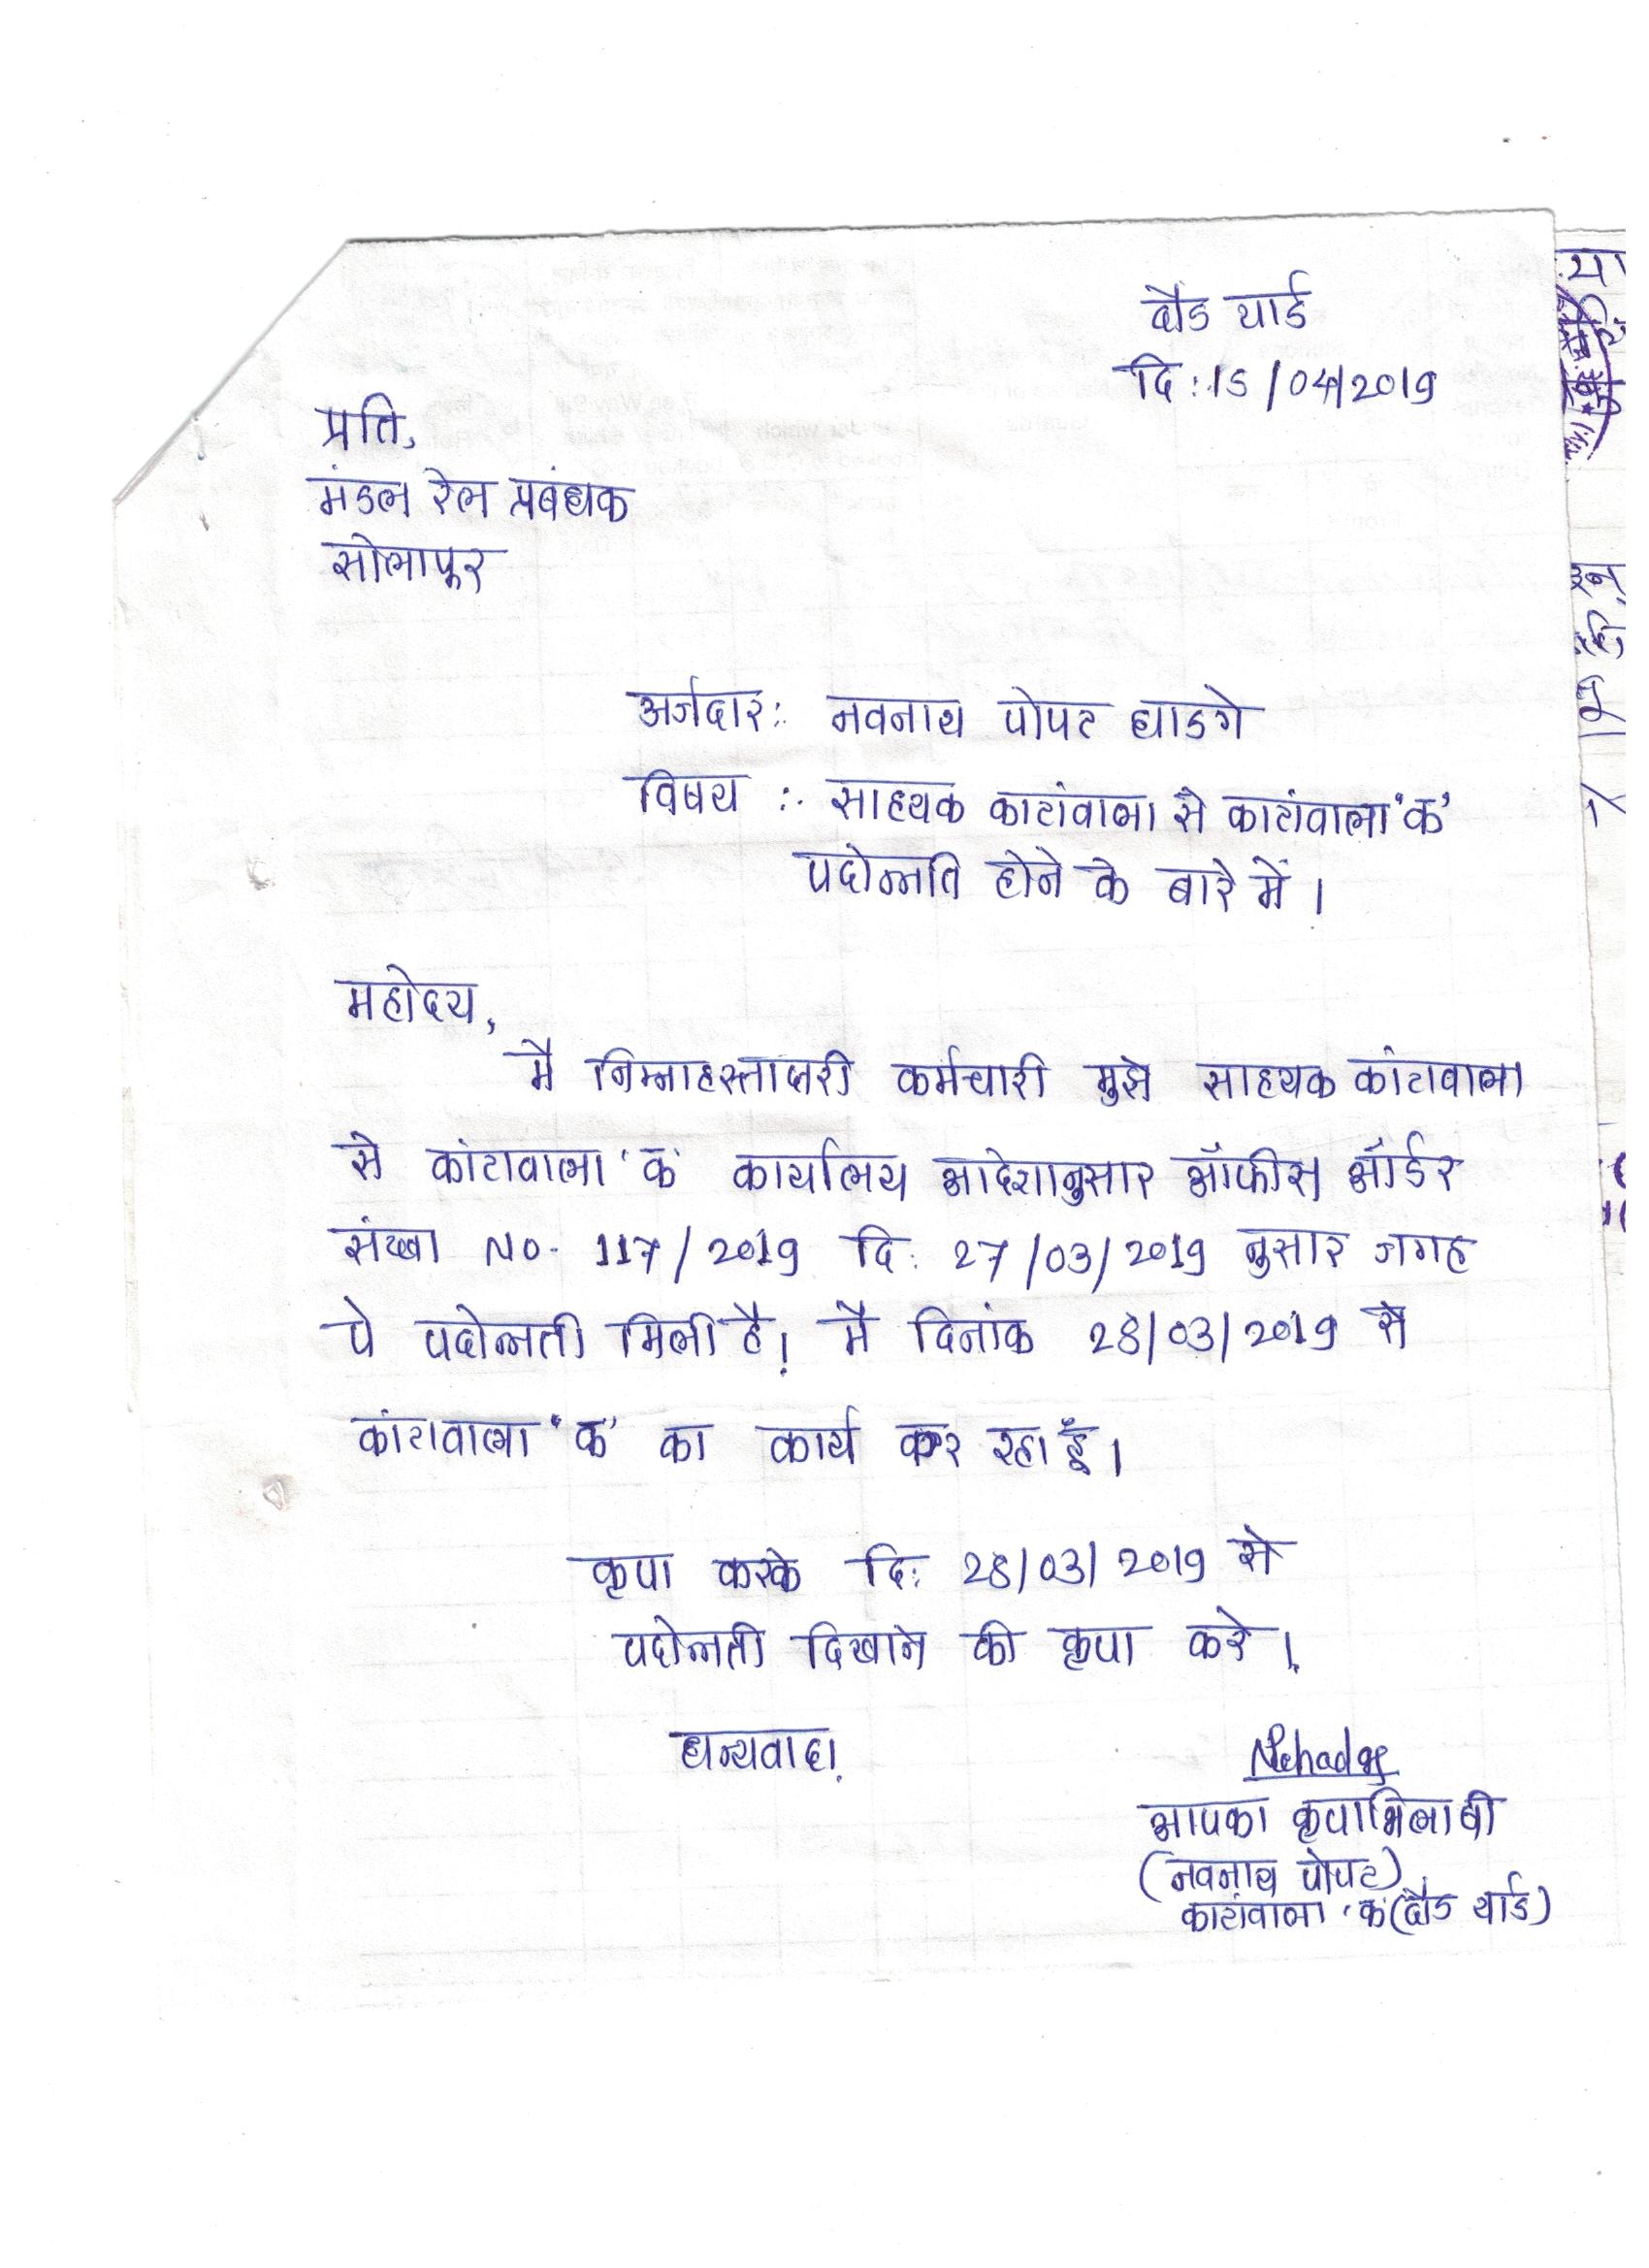 दौंड यार्ड
दि : 15/04/2019
प्रति,
मंडल रेल प्रबंधक
सोलापूर
अर्जदार :- नवनाथ पोपट घाडगे
विषय :- साहयक काटांवाला से काटांवाला 'क'
पदोन्नति होने के बारे में ।
महोदय,
मै निम्नाहस्ताक्षरी कर्मचारी मुझे साहयक कांटावाला
से कांटावाला 'क' कार्यालय आदेशानुसार ऑफीस ऑर्डर
संख्या No- 117/2019 दि: 27/03/2019 नुसार जगह
पे पदोन्नती मिली है। मै दिनांक 28/03/2019 से
कांटावाला 'क' का कार्य कर रहा हूँ।
कृपा करके दि: 28/03/2019 से
पदोन्नती दिखाने की कृपा करे ।
धन्यवाद।
आपका कृपाभिलाषी
(नवनाथ पोपट)
काटांवाला 'क' (दौंड यार्ड)